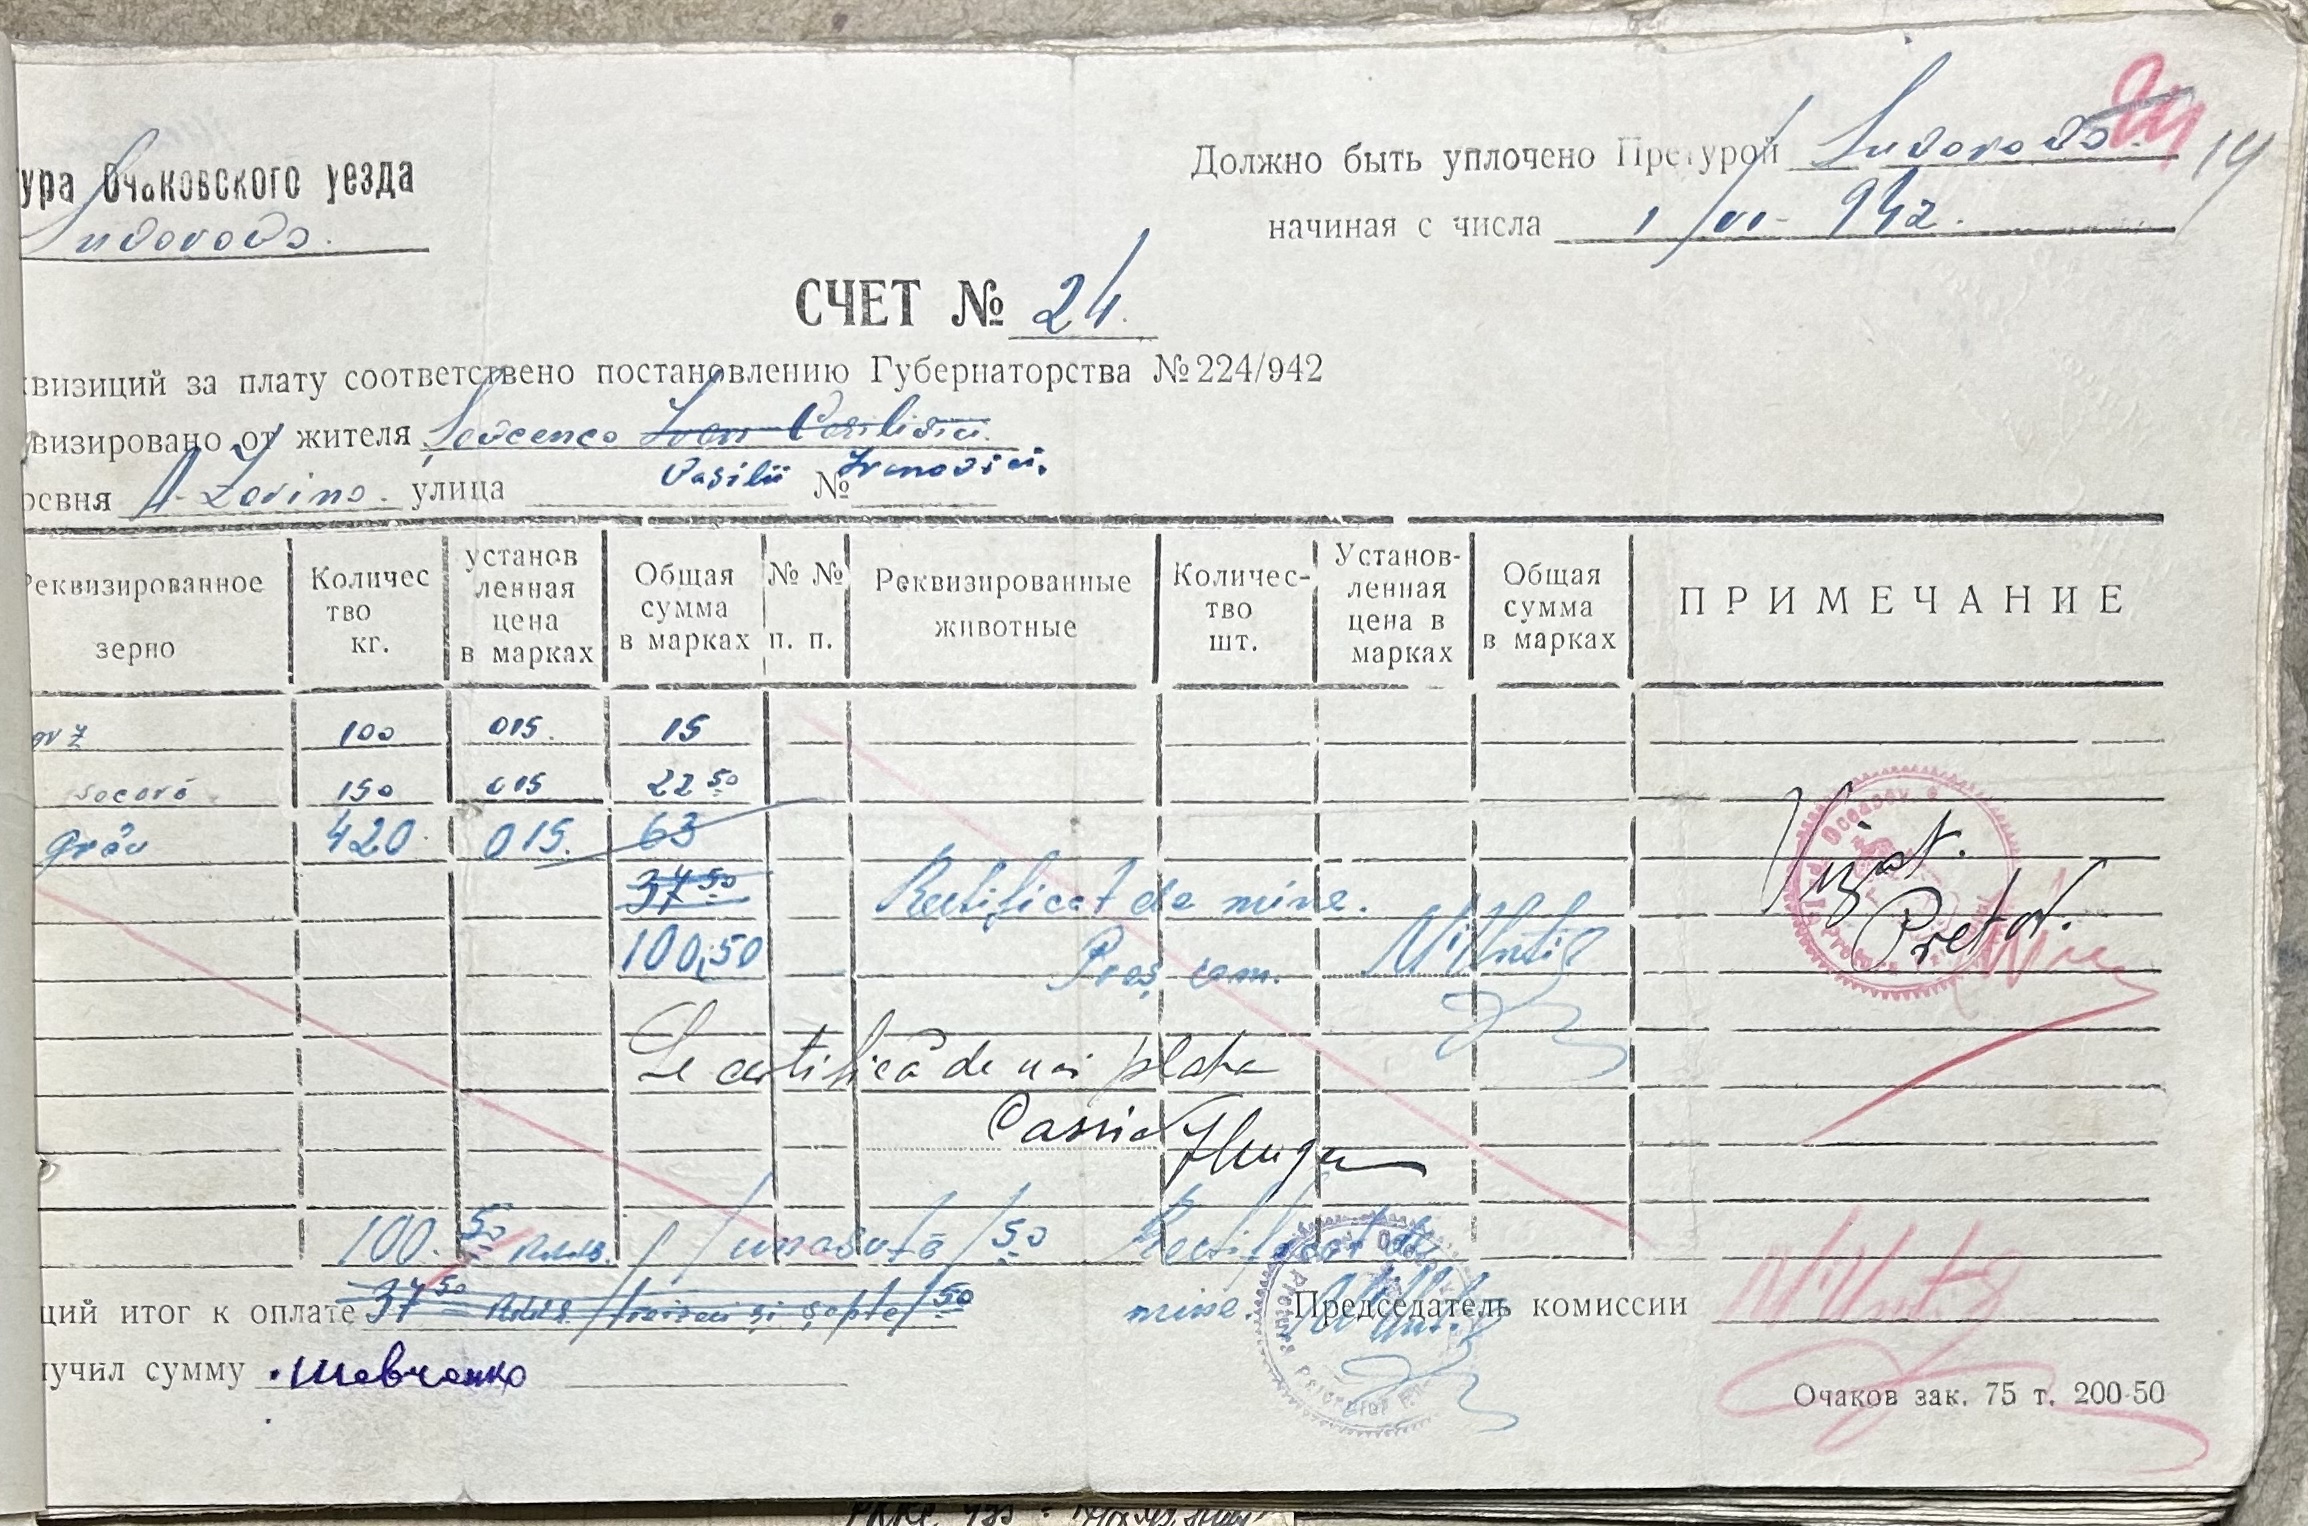 ура Очаковского уезда
Suvorovo.
Должно быть уплочено Претурой Suvorovo.
24
14
начиная с числа 1/VI- 942.
СЧЕТ № 24.
квизиций за плату соответствено постановлению Губернаторства №224/942
визировано от жителя Șevcenco Ivan Vasilievici.
Vasilii Ivanovici.
ревня улица №
Реквизированное зерно
Количес тво кг.
установ ленная цена в марках
Общая сумма в марках
№ № п. п.
Реквизированные животные
Количес- тво шт.
Установ- ленная цена в марках
Общая сумма в марках
ПРИМЕЧАНИЕ
orz 100 015. 15
secară 150 015 22 50
Grâu 420. 015. 63
37 50
Rectificat de mine.
100,50
Preș. com.
Vizat.
Pretor.
Se certifică de noi plata
Casier
100. 50 RKKS. /unasută/50 Rectificat de
mine.
щий итог к оплате 37 50 RKKS /treizeci și șapte/50
Председатель комиссии
лучил сумму Шевченко
Очаков зак. 75 т. 200-50